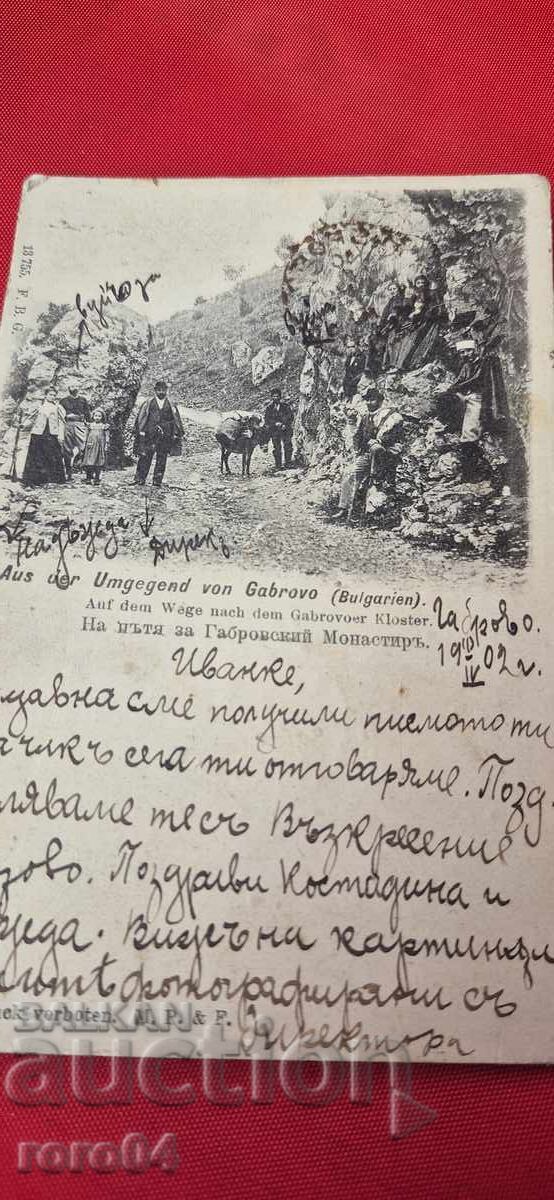 13 755. F. B. G
вуйчоз
надъжда
Aus der Umgegend von Gabrovo (Bulgarien).
Auf dem Wege nach dem Gabrovoer Kloster.
На пътя за Габровский Монастиръ.
Габрово.
19 10/IV 02 г.
Иванке,
давна сме получили писмото ти
сега ти отговаряме. Позд-
ляваме те съ Възкресение
ово. Поздрави Костадина и
жда. Видећ на картинка
фотографирани съ
Директора
ck verboten. M. P. & F.
BALKAN
auction
roro04